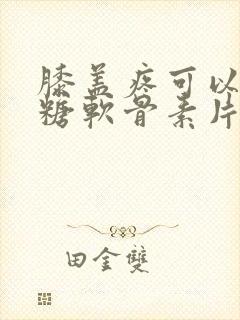 膝盖疼可以
糖軟骨素片
田金雙